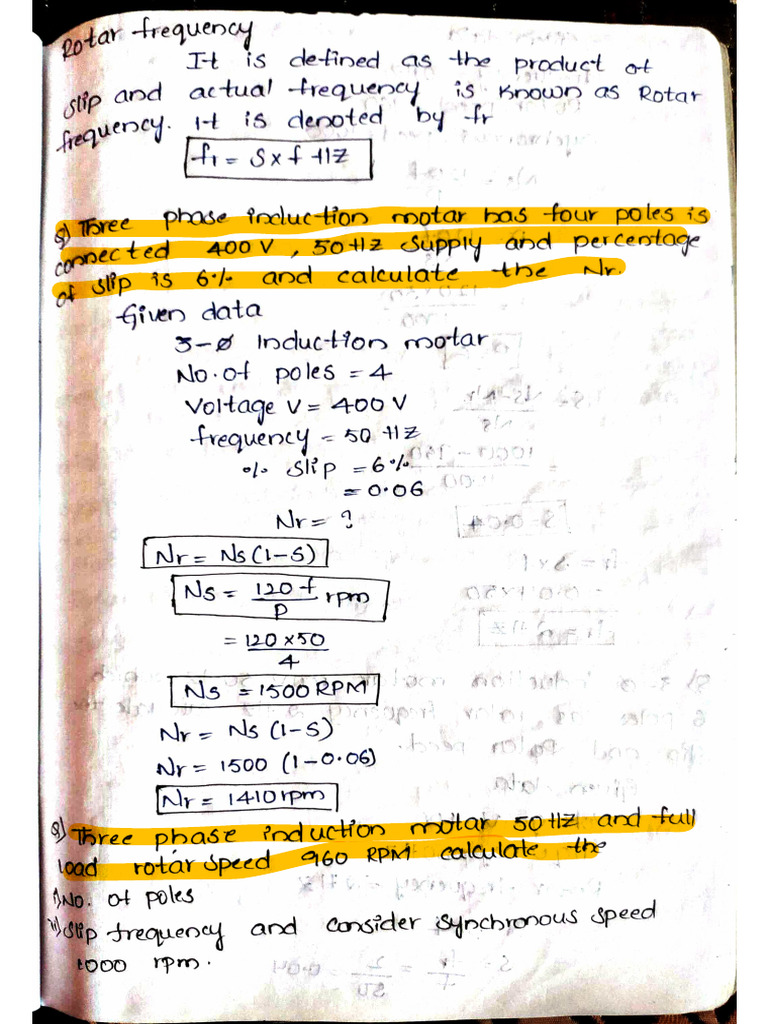 Rotar frequency
It is defined as the product of
slip and actual frequency is known as Rotar
frequency. It is denoted by fr
fr = S x f Hz
Q) Three phase induction motar has four poles is
connected 400 V, 50 Hz supply and percentage
of slip is 6% and calculate the Nr.
Given data
3-ø Induction motar
No. of poles = 4
Voltage V = 400 V
frequency = 50 Hz
% slip = 6%
= 0.06
Nr = ?
Nr = Ns (1-S)
Ns = 120 f / P rpm
= 120 x 50 / 4
Ns = 1500 RPM
Nr = Ns (1-S)
Nr = 1500 (1-0.06)
Nr = 1410 rpm
Q) Three phase induction motar 50 Hz and full
load rotar speed 960 RPM calculate the
i) No. of poles
ii) slip frequency and consider synchronous speed
1000 rpm.